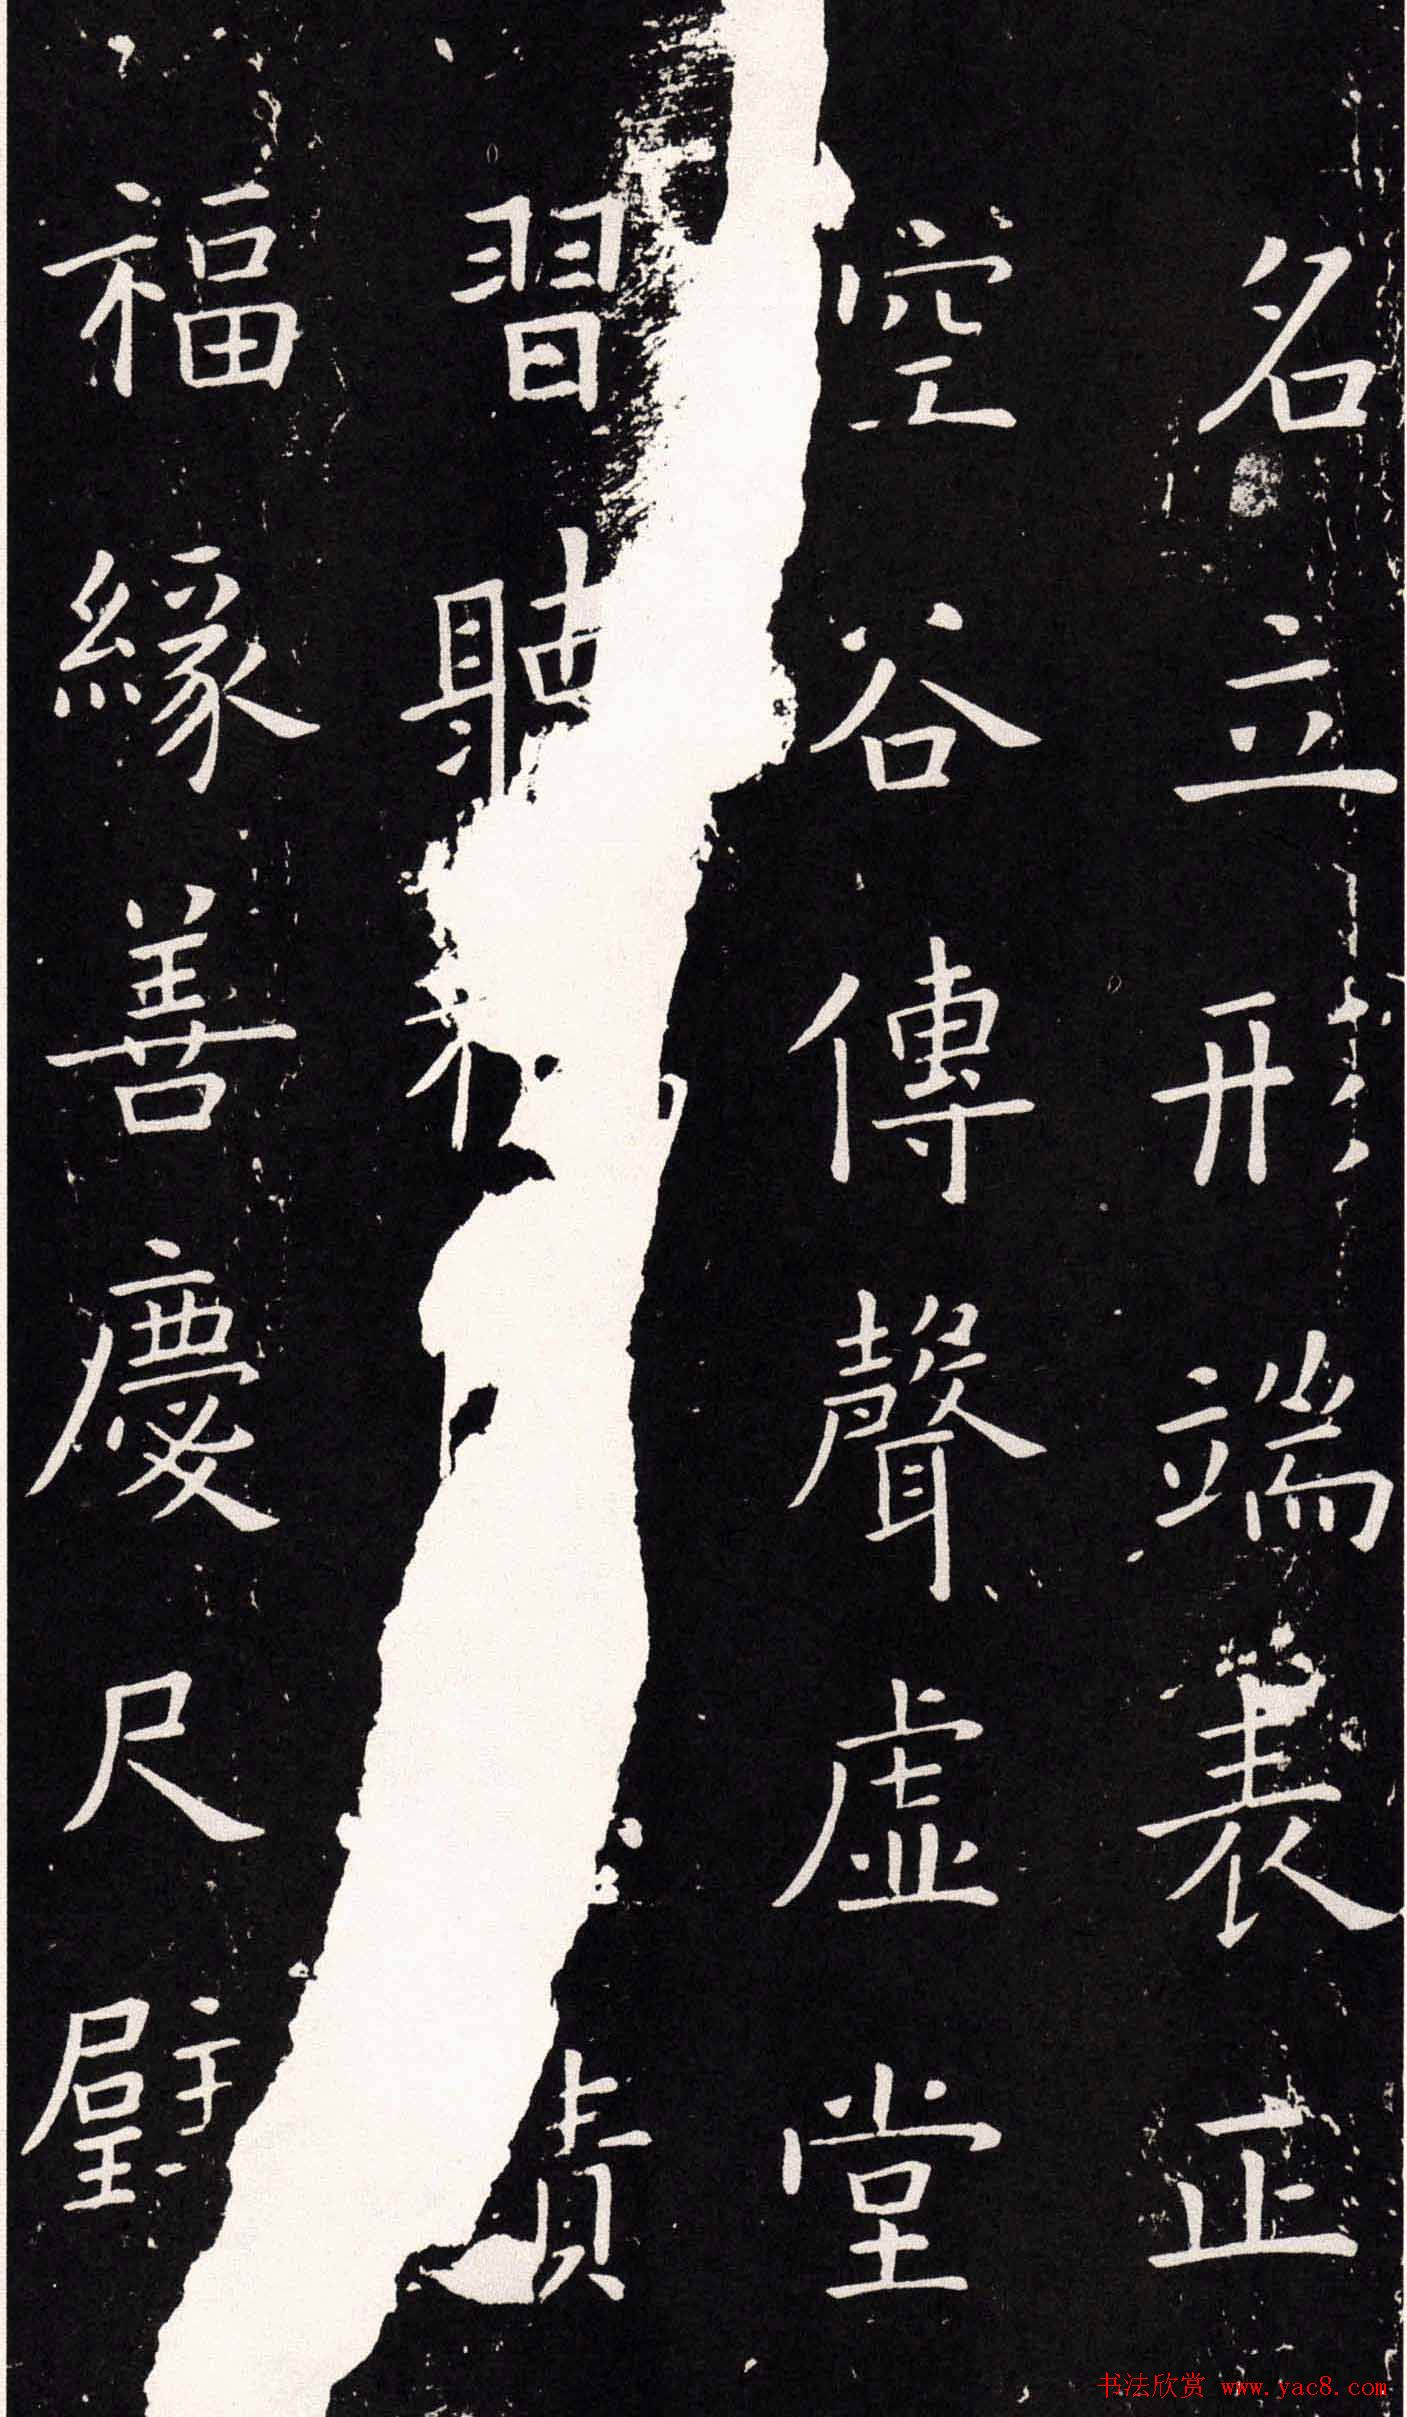 名立形端表正
空谷傳聲虚堂
習聽
福緣善慶尺璧
书法欣赏 www.yac8.com